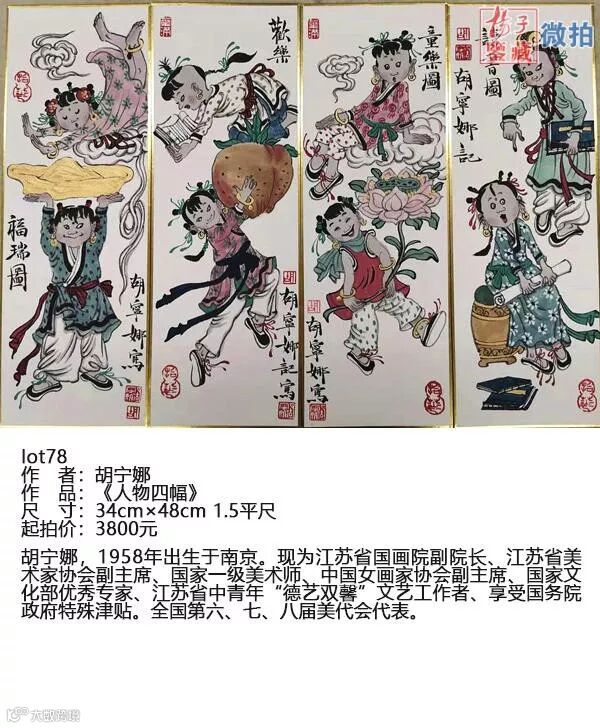 福瑞圖
胡寧娜寫
歡樂
胡寧娜記寫
童樂圖
胡寧娜寫
音圖
胡寧娜記
揚子
鑒藏
微拍
lot78
作 者：胡宁娜
作 品：《人物四幅》
尺 寸：34cm×48cm 1.5平尺
起拍价：3800元
胡宁娜，1958年出生于南京。现为江苏省国画院副院长、江苏省美
术家协会副主席、国家一级美术师、中国女画家协会副主席、国家文
化部优秀专家、江苏省中青年“德艺双馨”文艺工作者、享受国务院
政府特殊津贴。全国第六、七、八届美代会代表。
大数跨境